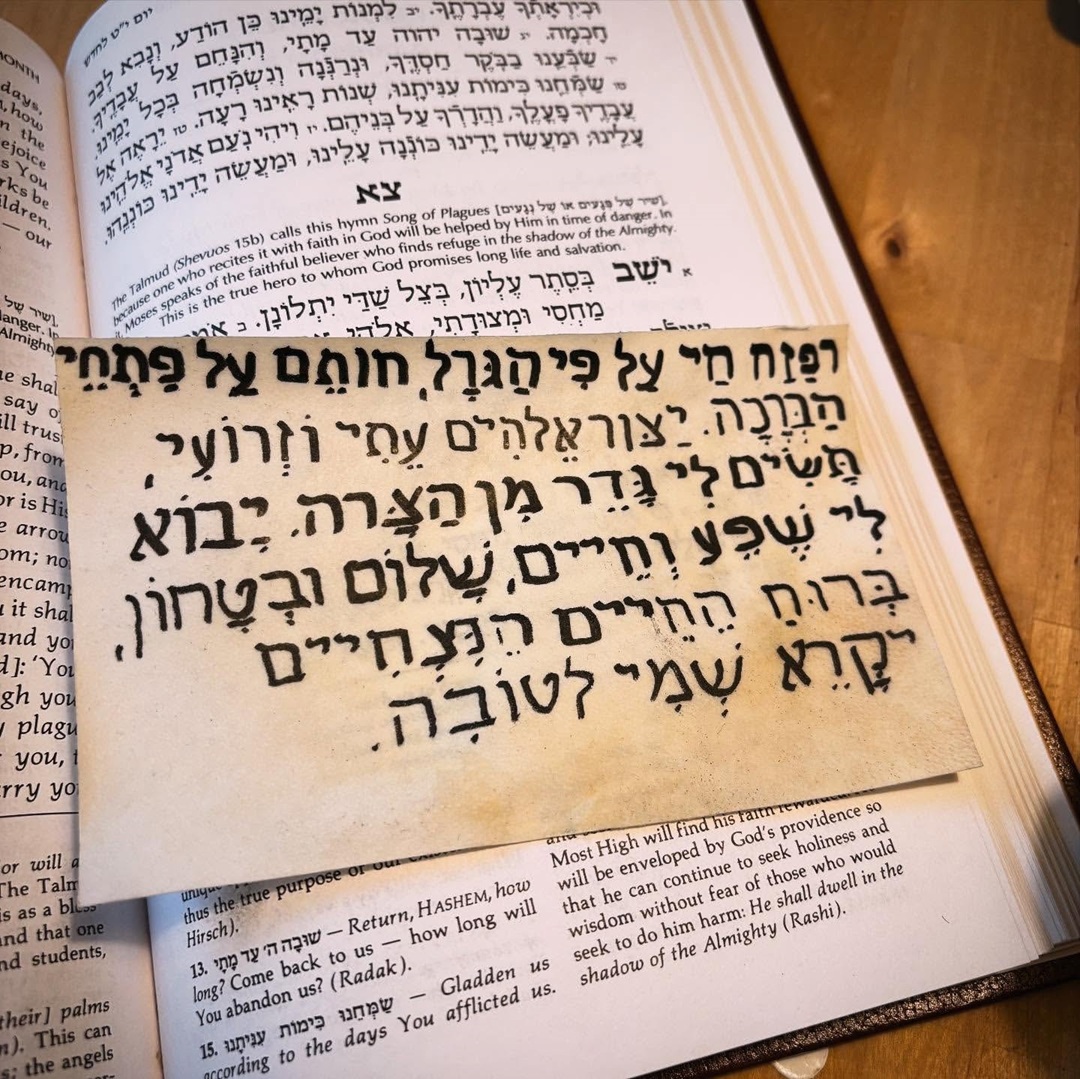 יום י״ט לחדש
וּכְיִרְאָתְךָ עֶבְרָתֶךָ. יב לִמְנוֹת יָמֵינוּ כֵּן הוֹדַע, וְנָבִא לְבַב
חָכְמָה. יג שׁוּבָה יהוה עַד מָתָי, וְהִנָּחֵם עַל עֲבָדֶיךָ.
יד שַׂבְּעֵנוּ בַבֹּקֶר חַסְדֶּךָ, וּנְרַנְּנָה וְנִשְׂמְחָה בְּכָל יָמֵינוּ.
טו שַׂמְּחֵנוּ כִּימוֹת עִנִּיתָנוּ, שְׁנוֹת רָאִינוּ רָעָה. טז יֵרָאֶה אֶל
עֲבָדֶיךָ פָעֳלֶךָ, וַהֲדָרְךָ עַל בְּנֵיהֶם. יז וִיהִי נֹעַם אֲדֹנָי אֱלֹהֵינוּ
עָלֵינוּ; וּמַעֲשֵׂה יָדֵינוּ כּוֹנְנָה עָלֵינוּ, וּמַעֲשֵׂה יָדֵינוּ כּוֹנְנֵהוּ.
צא
The Talmud (Shevuos 15b) calls this hymn Song of Plagues [שיר של פגעים או של נגעים],
because one who recites it with faith in God will be helped by Him in time of danger. In
it, Moses speaks of the faithful believer who finds refuge in the shadow of the Almighty.
This is the true hero to whom God promises long life and salvation.
א יֹשֵׁב בְּסֵתֶר עֶלְיוֹן, בְּצֵל שַׁדַּי יִתְלוֹנָן. ב
מַחְסִי וּמְצוּדָתִי, אֱלֹהַי
רפַּזַח חַי עַל פִּי הַגּרָל, חוֹתֵם עַל פַּתְחֵי
הַבְּרָכָה. יַצּוּר אֱלֹהִים עֵתִי וֹזְרוֹעִי,
תָּשִׂים לִי גָּדֵר מִן הַצָּרה. יָבוֹא
לִי שֶׁפֶע וְחֵיים, שָׁלוֹם וּבִטָחוֹן,
בְּרוּחַ הַחֵיים הַנִּצְחִיים
יקָרֵא שְׁמִי לטוֹבָה.
unique
thus the true purpose of our
Hirsch).
13. שׁוּבָה ה׳ עַד מָתָי — Return, HASHEM, how
long? Come back to us — how long will
You abandon us? (Radak).
15. שַׂמְּחֵנוּ כִּימוֹת עִנִּיתָנוּ — Gladden us
according to the days You afflicted us.
Most High will find his faith rewarded.
will be enveloped by God's providence so
that he can continue to seek holiness and
wisdom without fear of those who would
seek to do him harm: He shall dwell in the
shadow of the Almighty (Rashi).